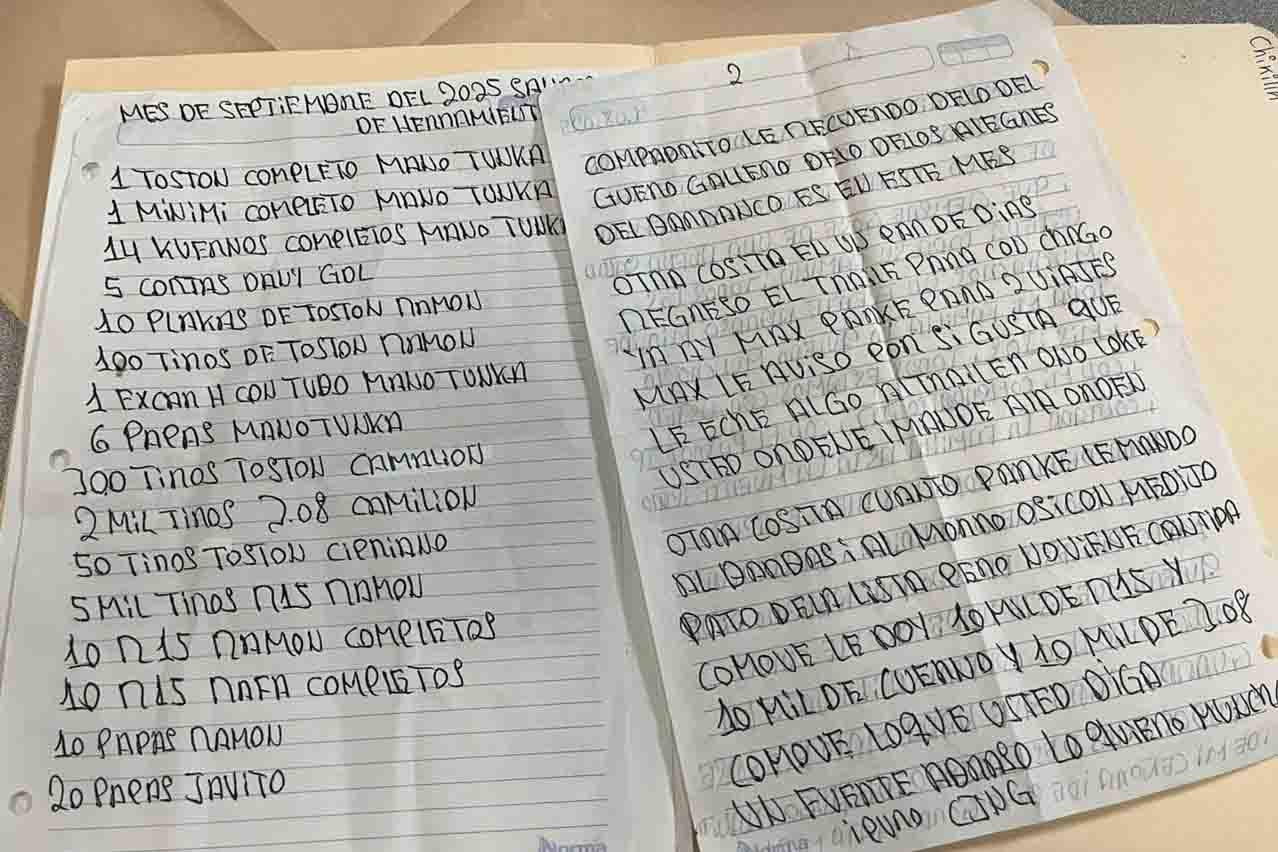 MES DE SEPTIEMBRE DEL 2025
DE HERRAMIENT
1 TOSTON COMPLETO MANO TUNKA
1 MINIMI COMPLETO MANO TUNKA
14 KUERNOS COMPLETOS MANO TUNK
5 CORTAS DAVY GOL
10 PLAKAS DE TOSTON RAMON
100 TIROS DE TOSTON RAMON
1 EXCAR H CON TUBO MANO TUNKA
6 PAPAS MANO TUNKA
300 TIROS TOSTON CAMALION
2 MIL TIROS 7.08 CAMILION
50 TIROS TOSTON CIPRIANO
5 MIL TIROS R15 RAMON
10 R15 RAMON COMPLETOS
10 R15 RAFA COMPLETOS
10 PAPAS RAMON
20 PAPAS JAVITO
Norma
2
COMPADRITO LE RECUERDO DELO DEL
GUERO GALLERO DELO DELOS ALEGRES
DEL BARRANCO ES EN ESTE MES
OTRA COSITA EN UN PAR DE DIAS
REGRESO EL TRAILE PARA CON CHAGO
YA AY MAX PARKE PARA 2 VIAJES
MAX LE AVISO POR SI GUSTA QUE
LE ECHE ALGO AL TRAILER ORO LOKE
USTED ORDENE I MANDE ALA ORDEN
OTRA COSITA CUANTO PARKE LE MANDO
AL BARBAS i AL MORRO OSICON MEDIJO
PATO DELA LISTA PERO NOVIENE CANTIDA
COMOVE LE DOY 10 MIL DE R15 Y
10 MIL DE CUERNO Y 10 MIL DE 7.08
COMOVE LOQVE USTED DIGA
UN FUERTE ABRASO LO QUIERO MUNCH
CJNG
Norma
Chikilin